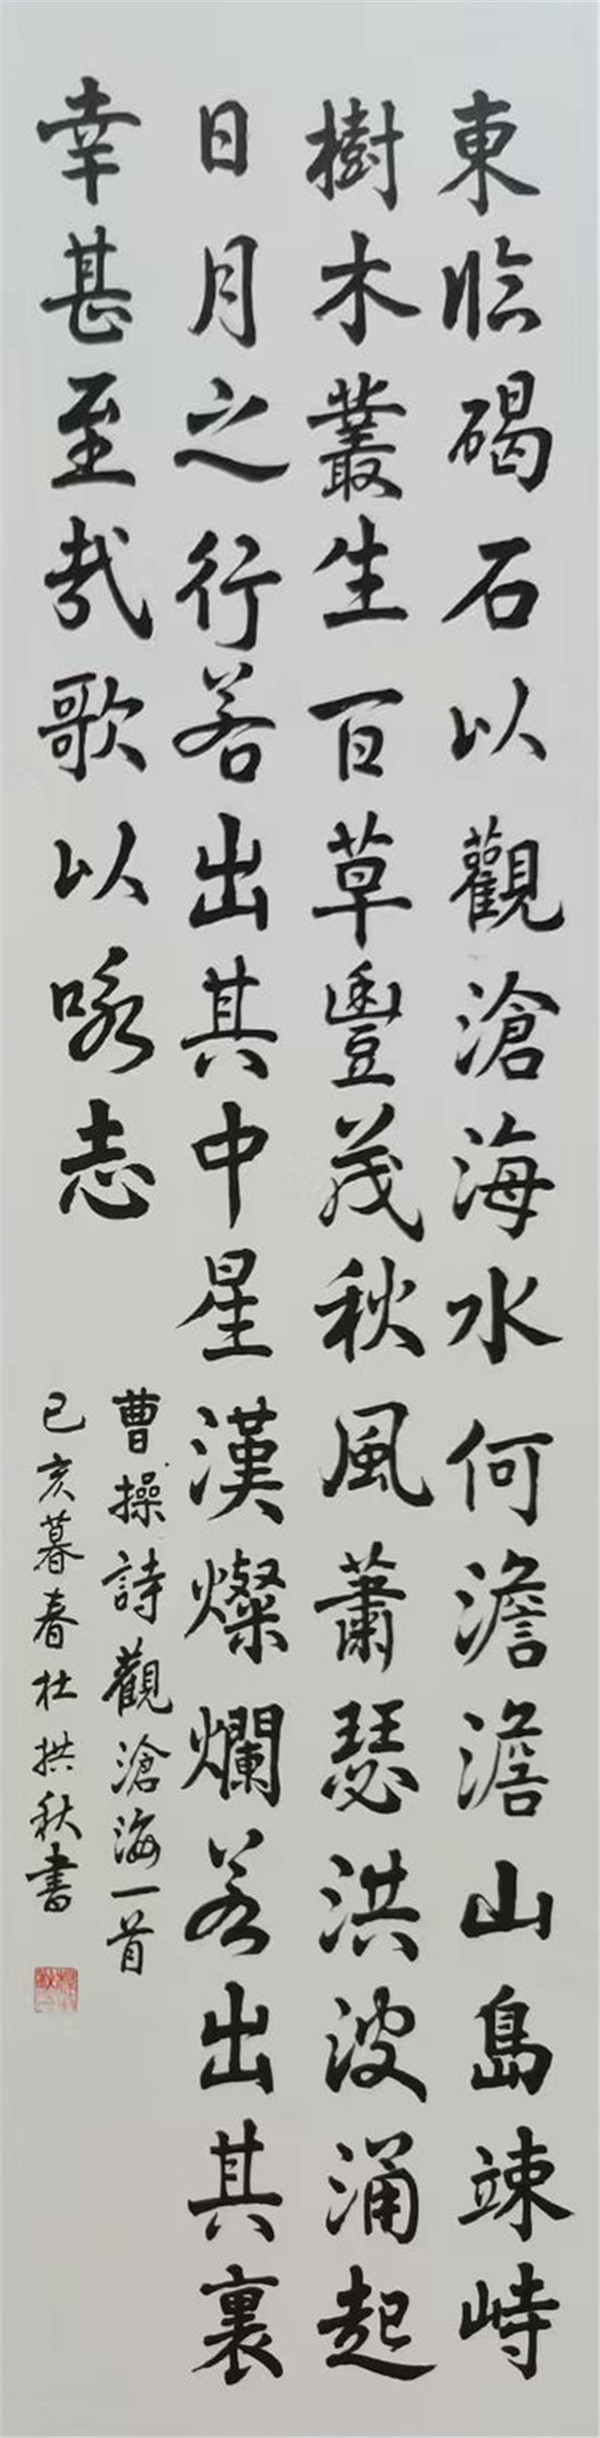 東临碣石以觀滄海水何澹澹山島竦峙
樹木叢生百草豐茂秋風蕭瑟洪波涌起
日月之行若出其中星漢燦爛若出其裏
幸甚至哉歌以咏志
曹操詩觀滄海一首
己亥暮春杜拱秋書